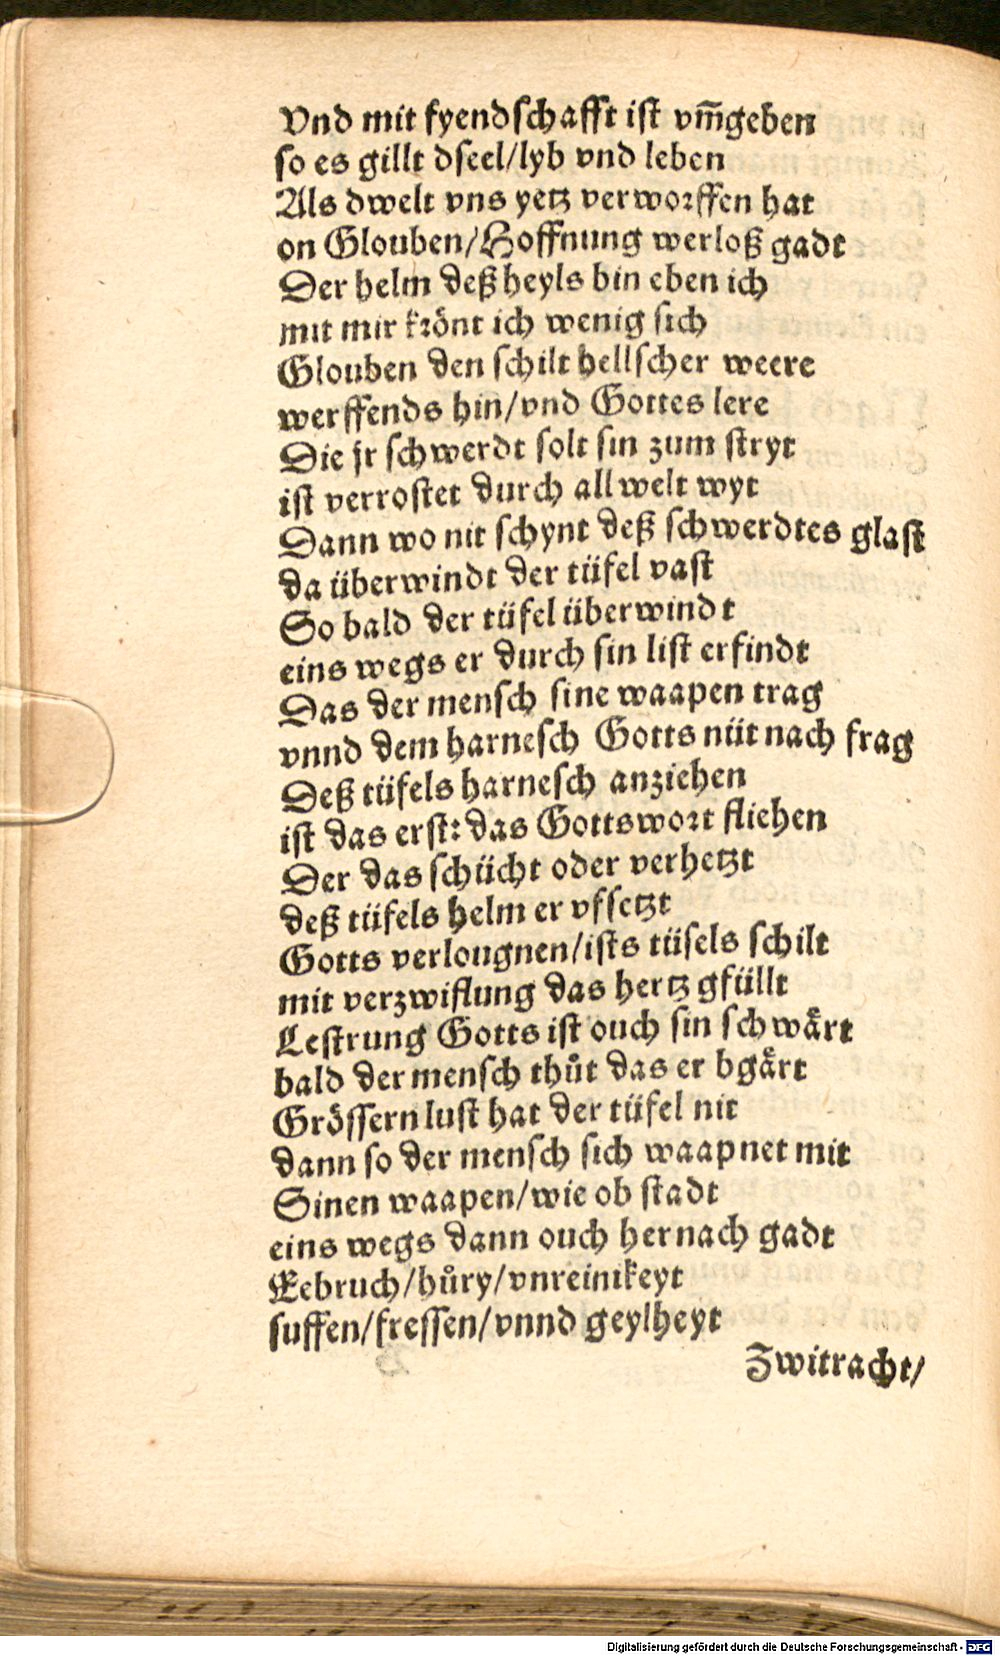 Vnd mit fyendschafft ist vm̃geben
so es gillt dseel/lyb vnd leben
Als dwelt vns yetz verworffen hat
on Glouben/Hoffnung werloß gadt
Der helm deß heyls bin eben ich
mit mir krönt ich wenig sich
Glouben den schilt hellscher weere
werffends hin/vnd Gottes lere
Die jr schwerdt solt sin zum stryt
ist verrostet durch all welt wyt
Dann wo nit schynt deß schwerdtes glast
da überwindt der tüfel vast
So bald der tüfel überwindt
eins wegs er durch sin list erfindt
Das der mensch sine waapen trag
vnnd dem harnesch Gotts nüt nach frag
Deß tüfels harnesch anziehen
ist das erst: das Gottswort fliehen
Der das schücht oder verhetzt
deß tüfels helm er vfsetzt
Gotts verlougnen/ists tüfels schilt
mit verzwiflung das hertz gfüllt
Lestrung Gotts ist ouch sin schwårt
bald der mensch thůt das er bgårt
Grössern lust hat der tüfel nit
dann so der mensch sich waapnet mit
Sinen waapen/wie ob stadt
eins wegs dann ouch hernach gadt
Eebruch/hůry/vnreinikeyt
suffen/fressen/vnnd geylheyt
Zwitracht/
Digitalisierung gefördert durch die Deutsche Forschungsgemeinschaft - DFG